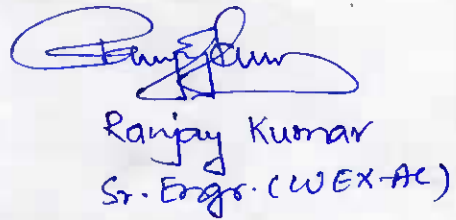 Ranjay Kumar
Sr. Engr. (WEX-AC)